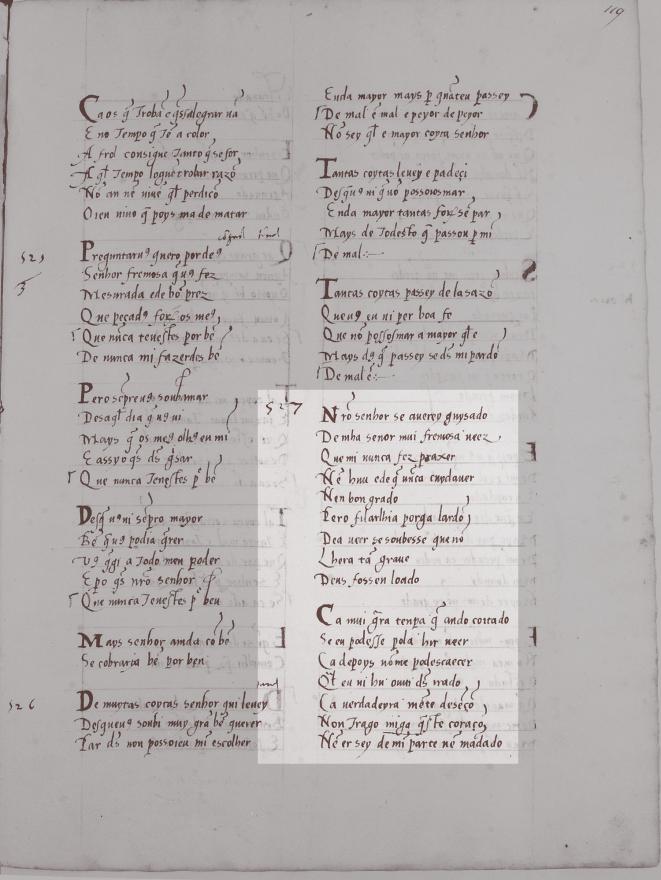 119
Ca os q̃ Trobã e q̃ss alegrar uã
E no Tempo q̃ Tẽ a color
A frol consigue Tanto q̃ se for
A q̃l Tempo logue trobar razõ
Nõ an nẽ uiue q̃l perdiço
O ieu uiuo q̃ poys ma de matar
525
Preguntaruꝯ quero por deꝯ
Senhor fremosa q̃ uꝯ fez
Mesurada e de bõ prez
Que pecadꝯ forõ os meꝯ
Que nũca teuestes por bẽ
De nunca mi fazerdes bẽ
Pero sẽpreuꝯ soub amar
Des aq̃l dia q̃ uꝯ ui
Mays q̃ os meꝯ olhꝯ eu mi
E assy o q̃s dꝯ g̃sar
Que nunca Teuestes p bẽ
Desq̃ uꝯ ui sẽpro mayor
Bẽ q̃ uꝯ podia q̃rer
Vꝯ q̃gi a Todo meu poder
E po q̃s nr̃o senhor
Que nunca Teuestes p beu
Mays senhor ainda cõ bẽ
Se cobraria bẽ por ben
526
De muytas coytas senhor que leuey
Desqueuꝯ soubi muy grã bẽ querer
Par dꝯ non posso ieu mi escolher
Enda mayor mays p q̃nateu passey
De mal ẽ mal e peyor de peyor
Nõ sey q̃l e mayor coyta senhor
Tantas coytas leuey e padeci
Des q̃ uꝯ ui q̃ nõ posso ios mar
Enda mayor tantas forõ sẽ par
Mays de Todesto q̃ passou p mi
De mal
Tantas coytas passey de la sazõ
Que uꝯ eu ui per boa fe
Que nõ posso osmar a mayor q̃l e
Mays dꝯ q̃ passey se dꝯ mi pardõ
De mal ẽ
527
Nrõ senhor se auerey guysado
De mha senor mui fremosa ueer
Que mi nunca fez prazer
Nẽ huu e de q̃ nũca cuyd auer
Nen bon grado
Pero filarlhia por galardõ
De a ueer se soubesse que nõ
Lhera tã graue
Deus fossen loado
Ca mui g̃ra tenpa q̃ ando coitado
Se eu podesse pola hir ueer
Ca depoys nõ me pod escaecer
Q̃l eu ui hu ouui dꝯ irado
Ca uerdadeyra mẽte deseço
Non Trago migo q̃ste coraço
Nẽ er sey de mi parte nẽ mãdado